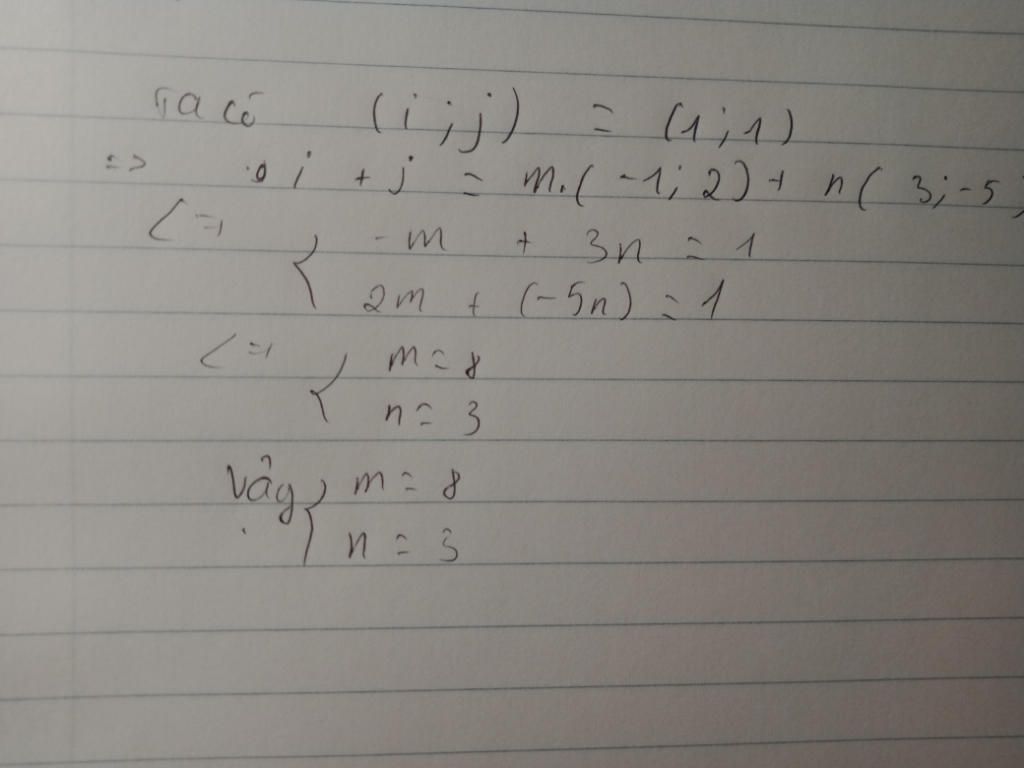 Ta có (i ; j) = (1 ; 1)
=> i + j = m.(-1; 2) + n( 3; -5)
<=> { -m + 3n = 1
2m + (-5n) = 1
<=> { m = 8
n = 3
Vậy { m = 8
n = 3